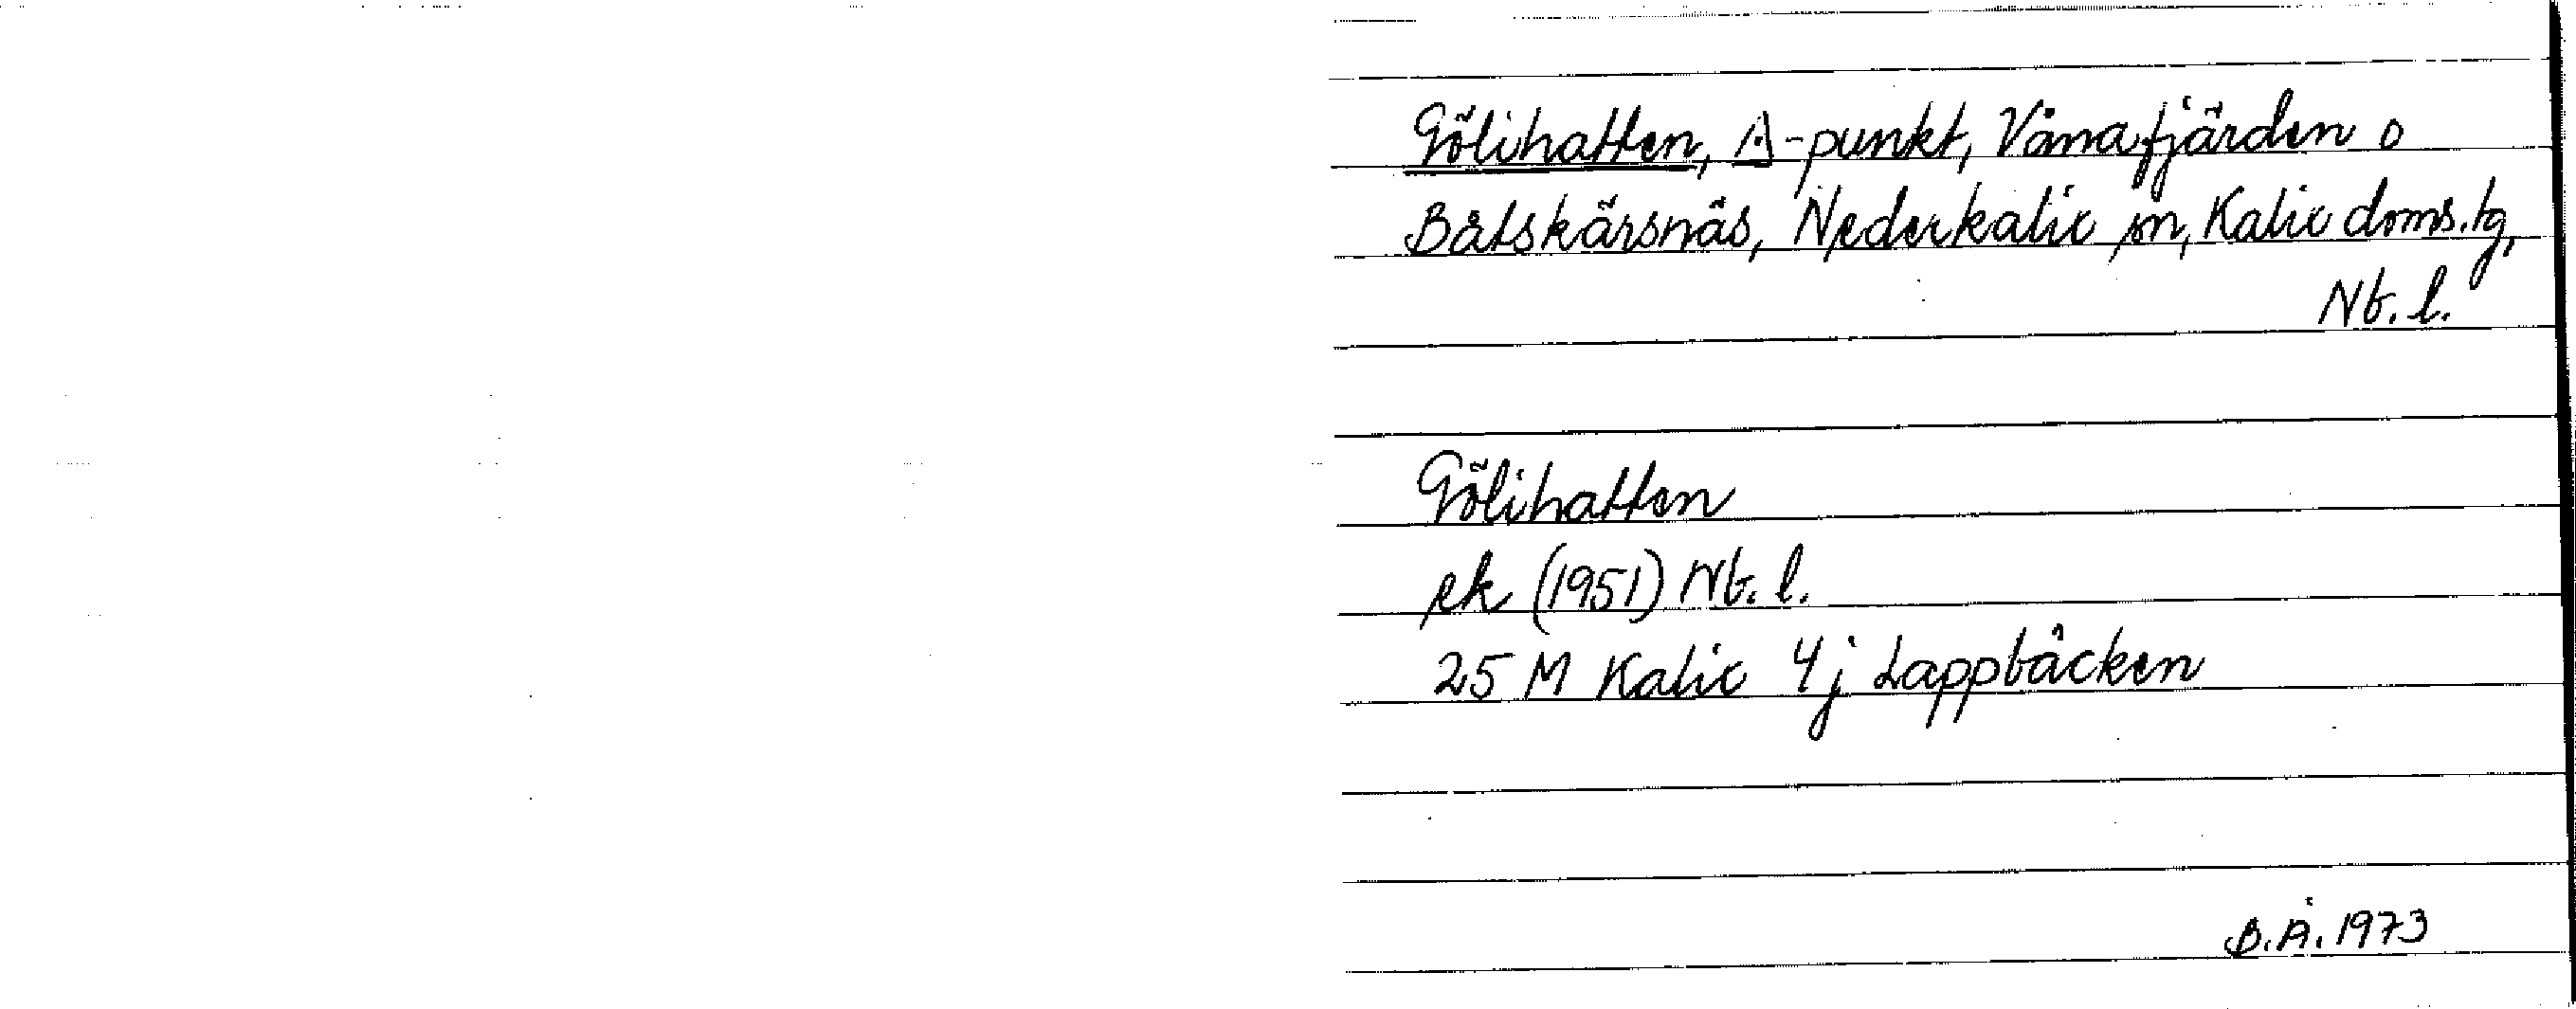 Gölihatten, Δ-punkt, Vånafjärden o
Båtskärsnäs, Nederkalix sn, Kalix doms.tg,
Nb. l.
Gölihatten
ek (1951) Nb. l.
25 M Kalix 4j Lappbäcken
B.Å. 1973